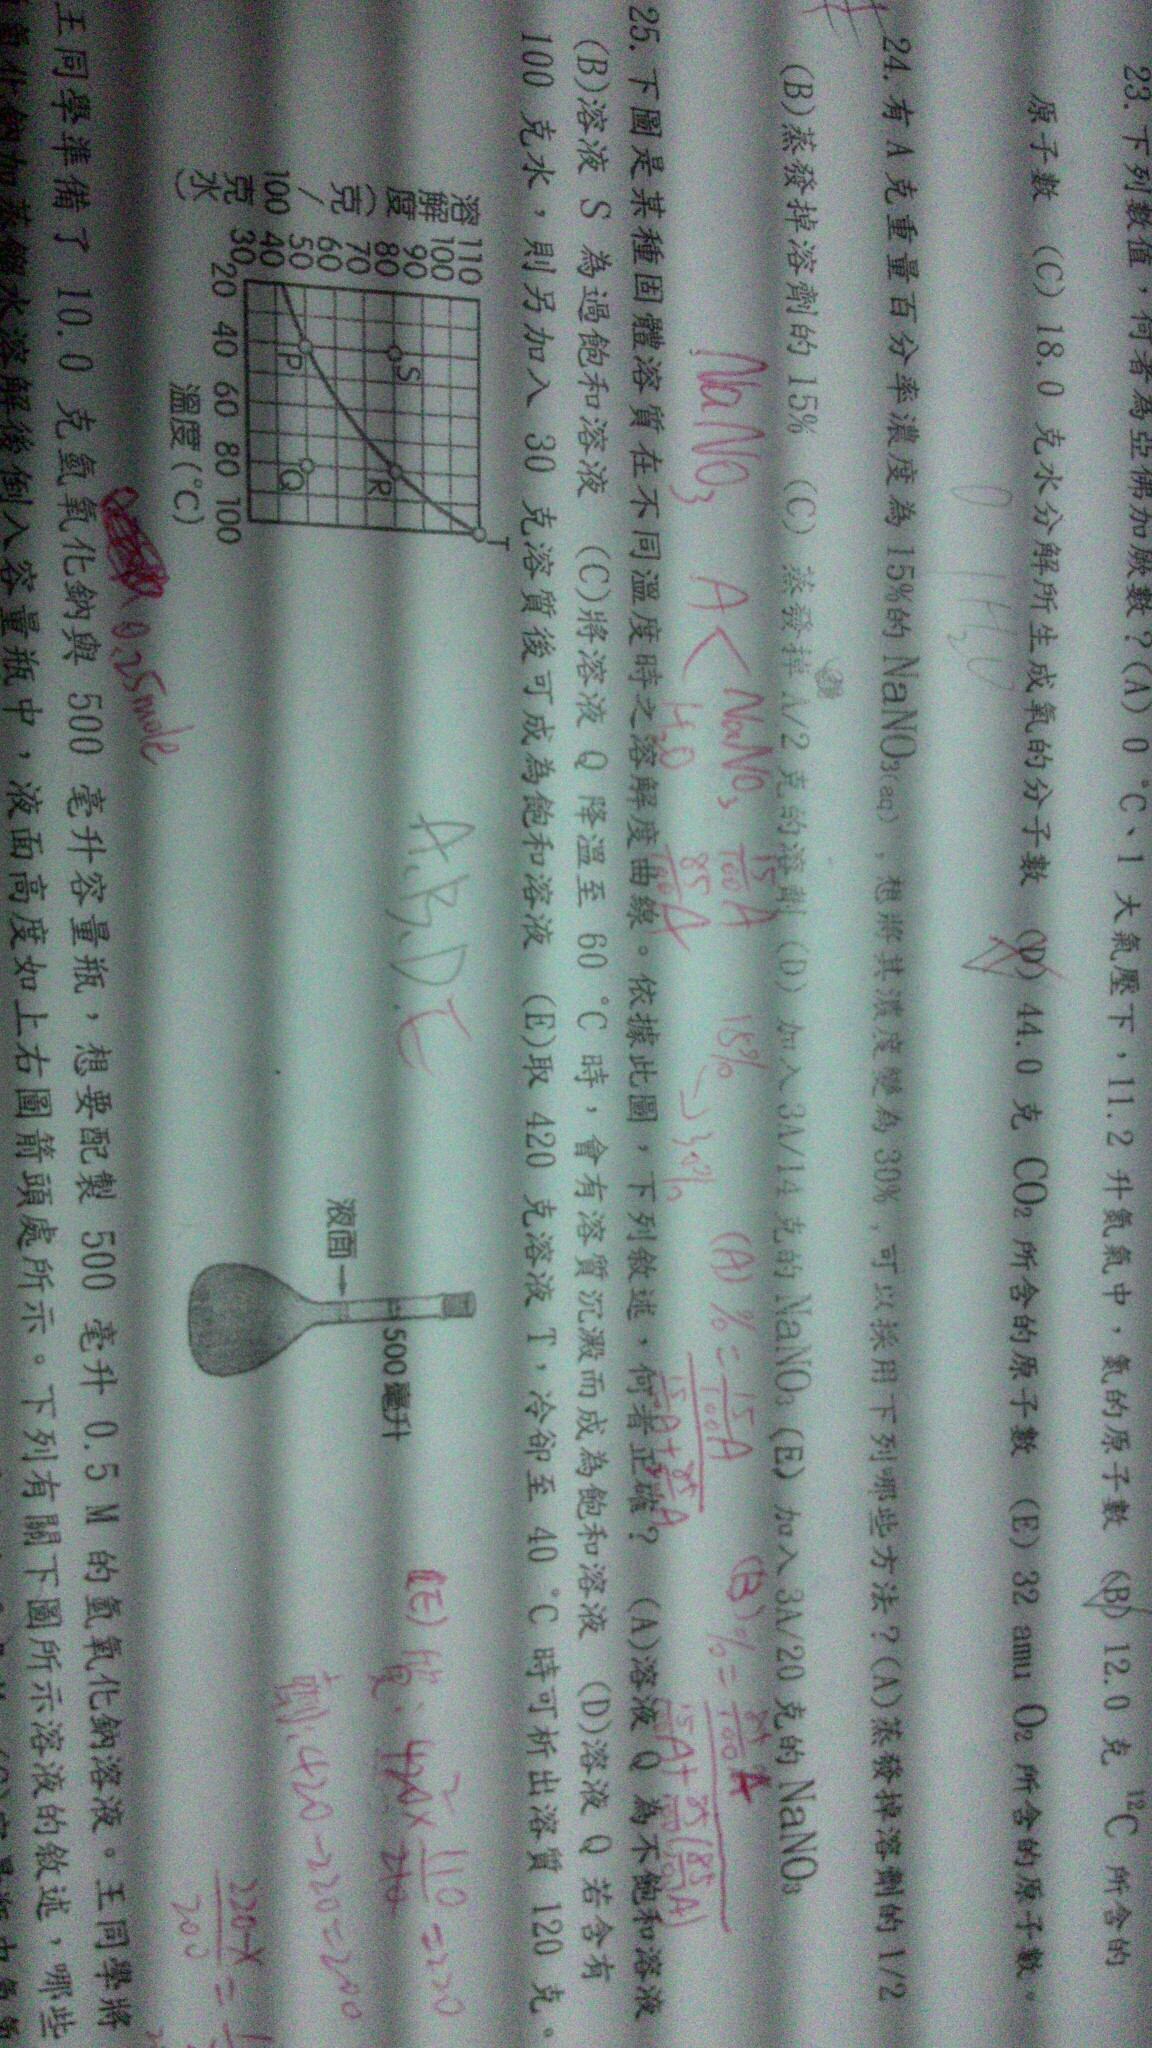 23. 下列數值，何者為亞佛加厥數？(A) 0 °C、1 大氣壓下，11.2 升氮氣中，氮的原子數 (B) 12.0 克 ¹²C 所含的
原子數 (C) 18.0 克水分解所生成氧的分子數 (D) 44.0 克 CO₂ 所含的原子數 (E) 32 amu O₂ 所含的原子數。
24. 有 A 克重量百分率濃度為 15%的 NaNO₃(aq)，想將其濃度變為 30%，可以採用下列哪些方法？(A)蒸發掉溶劑的 1/2
(B)蒸發掉溶劑的 15% (C) 蒸發掉 A/2 克的溶劑 (D) 加入 3A/14 克的 NaNO₃ (E) 加入 3A/20 克的 NaNO₃
NaNO₃ A < NaNO₃ 15/100 A 15% → 30% (A) % =
H₂O 85/100 A
(B) % =
25. 下圖是某種固體溶質在不同溫度時之溶解度曲線。依據此圖，下列敘述，何者正確？ (A)溶液 Q 為不飽和溶液
(B)溶液 S 為過飽和溶液 (C)將溶液 Q 降溫至 60 °C 時，會有溶質沉澱而成為飽和溶液 (D)溶液 Q 若含有
100 克水，則另加入 30 克溶質後可成為飽和溶液 (E)取 420 克溶液 T，冷卻至 40 °C 時可析出溶質 120 克。
溶解度(克/100克水)
110
100
90
80
70
60
50
40
30
20 40 60 80 100
溫度(°C)
S
P
R
Q
T
A、B、D、E
液面→
500 毫升
(E) 質、420 × 110/210 = 220
劑、420-220=200
220-X
200
0.25mole
王同學準備了 10.0 克氫氧化鈉與 500 毫升容量瓶，想要配製 500 毫升 0.5 M 的氫氧化鈉溶液。王同學將
氫氧化鈉加蒸餾水溶解後倒入容量瓶中，液面高度如上右圖箭頭處所示。下列有關下圖所示溶液的敘述，哪些